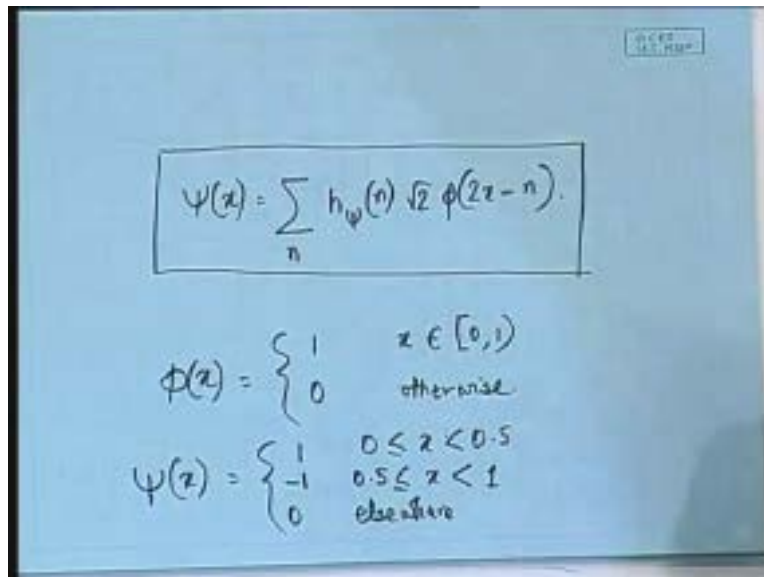 ψ(x) = ∑ₙ h_ψ(n) √2 φ(2x − n).
φ(x) = { 1 x ∈ [0,1)
0 otherwise
ψ(x) = { 1 0 ≤ x < 0.5
−1 0.5 ≤ x < 1
0 elsewhere